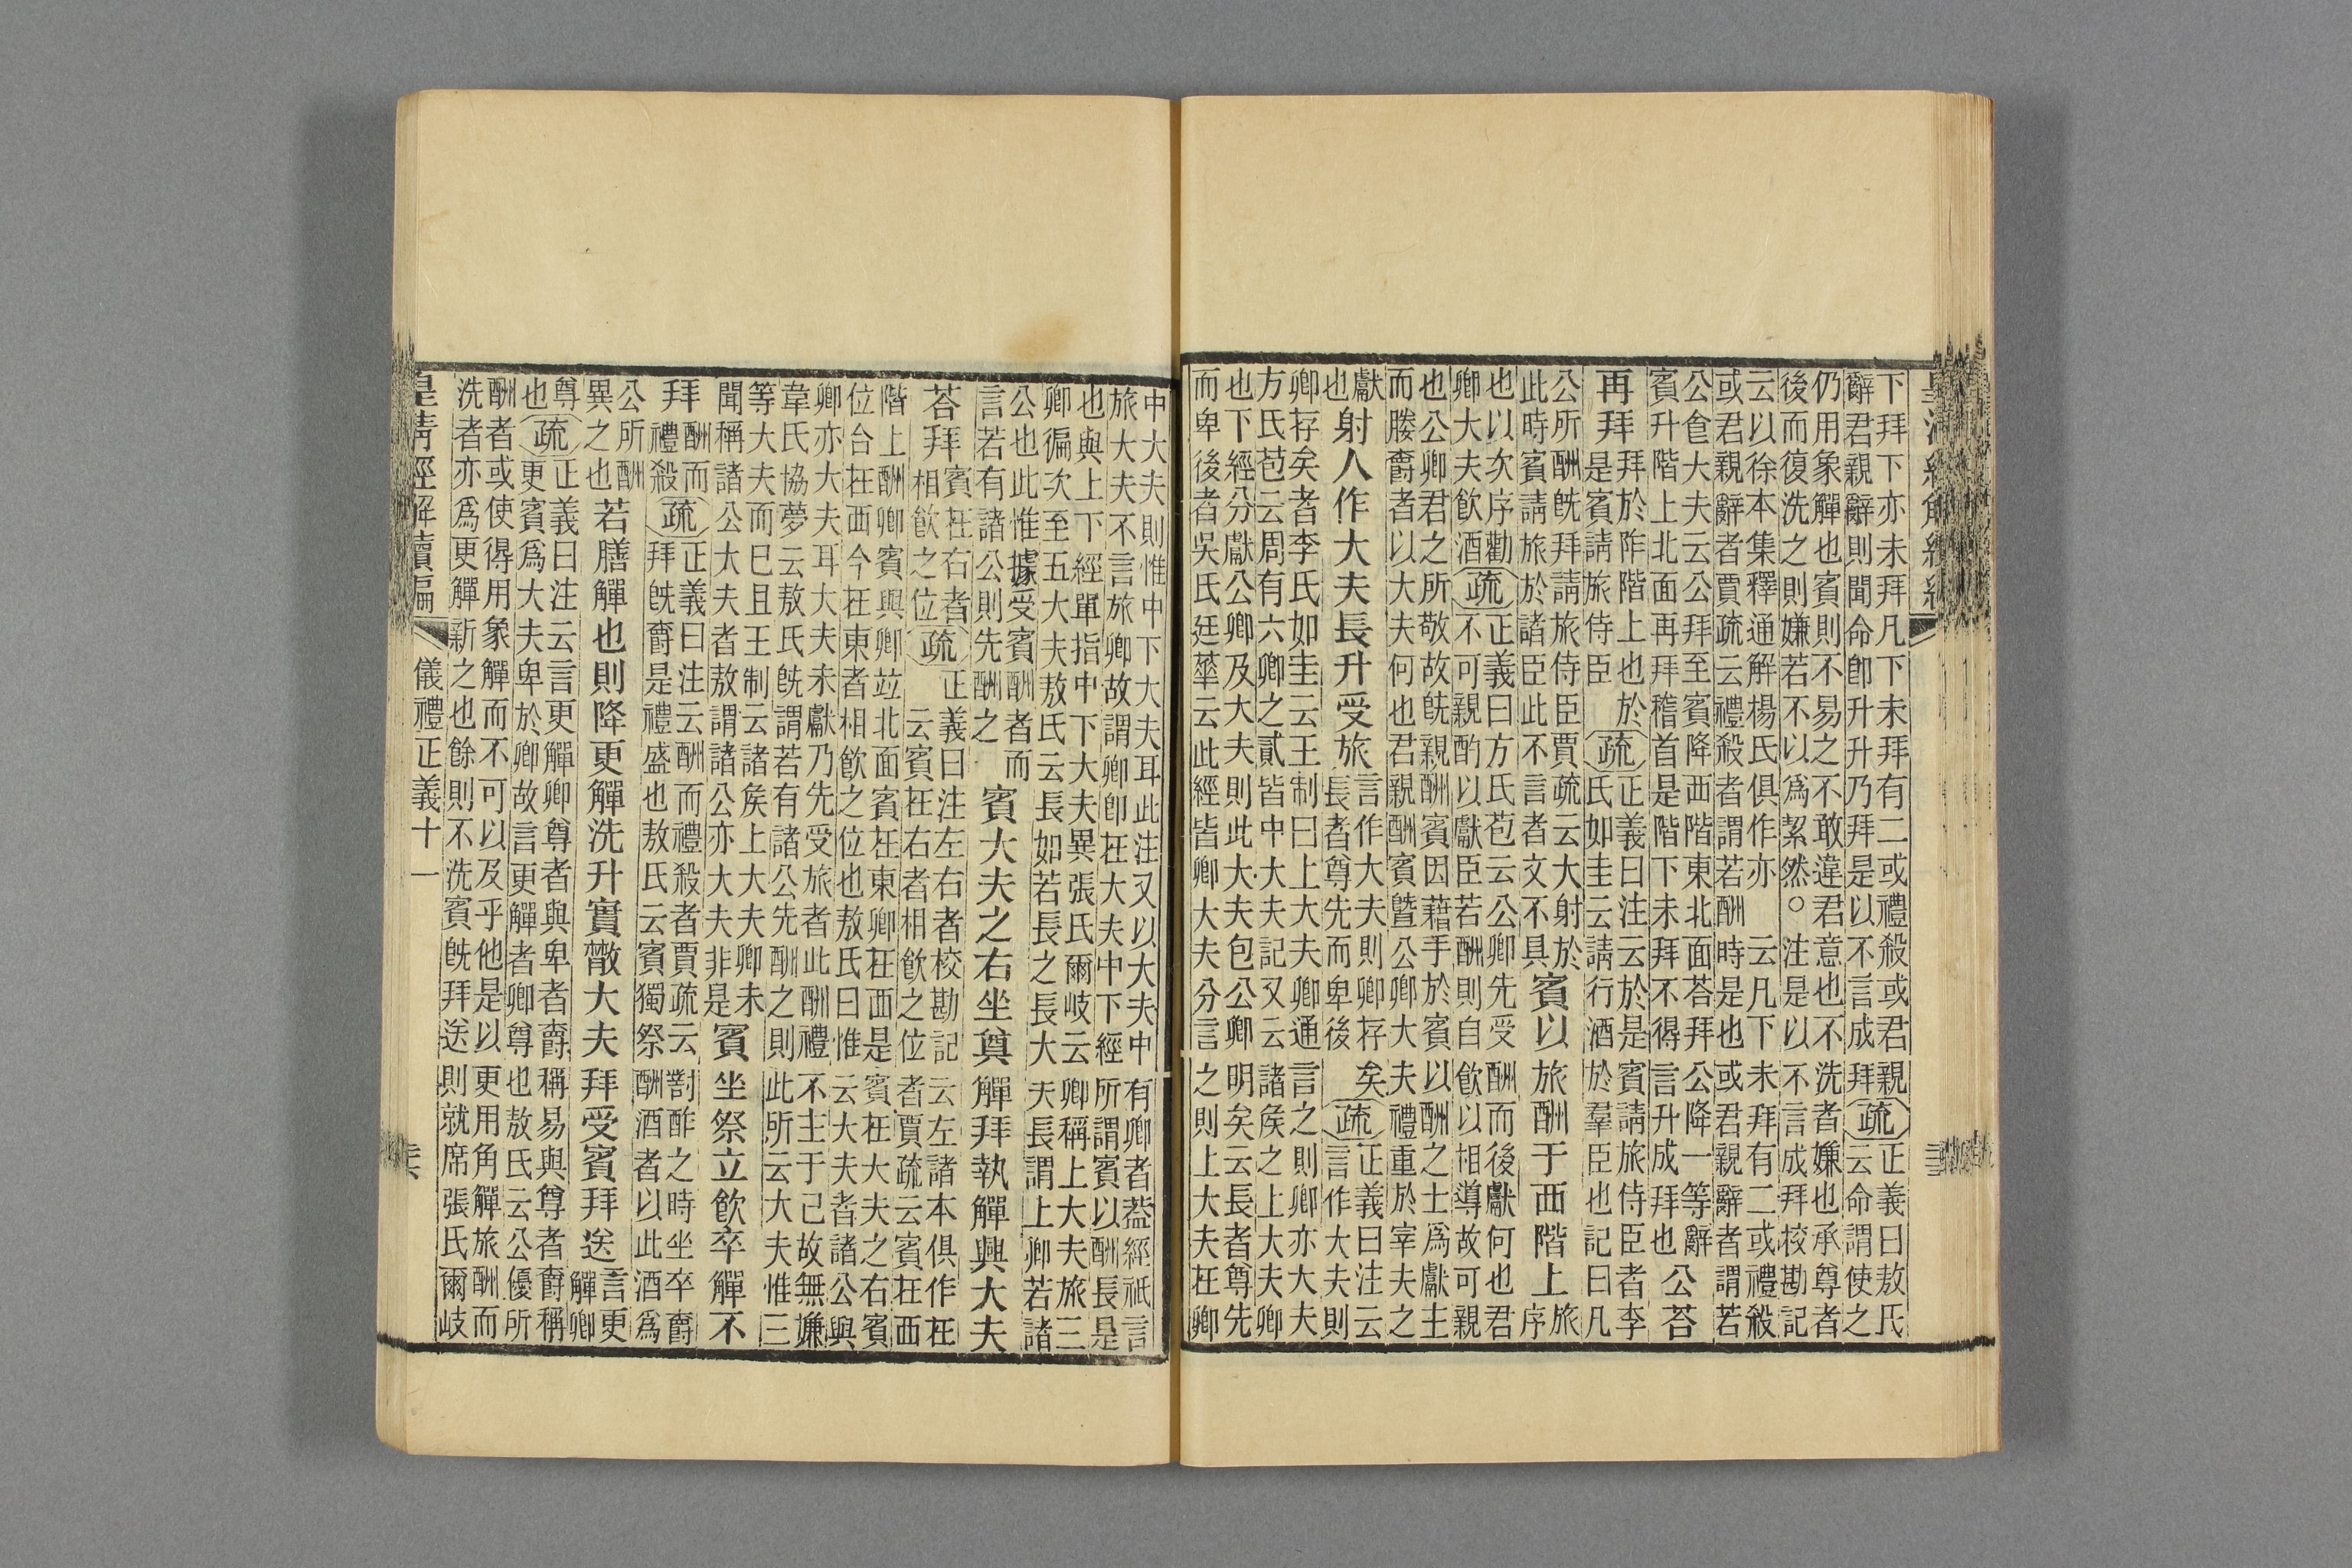 下拜下亦未拜凡下未拜有二或禮殺或君親
辭君親辭則聞命卽升升乃拜是以不言成拜
疏
正義曰敖氏
云命謂使之
仍用象觶也賓則不易之不敢違君意也不洗者嫌也承尊者
後而復洗之則嫌若不以爲絜然○注是以不言成拜校勘記
云以徐本集釋通解楊氏俱作亦 云凡下未拜有二或禮殺
或君親辭者賈疏云禮殺者謂若酬時是也或君親辭者謂若
公食大夫云公拜至賓降西階東北面荅拜公降一等辭
賓升階上北面再拜稽首是階下未拜不得言升成拜也
公荅
再拜
拜於阼階上也於
是賓請旅侍臣
疏
正義曰注云於是賓請旅侍臣者李
氏如圭云請行酒於羣臣也記曰凡
公所酬旣拜請旅侍臣賈疏云大射於
此時賓請旅於諸臣此不言者文不具
賓以旅酬于西階上
旅
序
也以次序勸
卿大夫飮酒
疏
正義曰方氏苞云公卿先受酬而後獻何也君
不可親酌以獻臣若酬則自飮以相導故可親
也公卿君之所敬故旣親酬賓因藉手於賓以酬之士爲獻主
而媵爵者以大夫何也君親酬賓曁公卿大夫禮重於宰夫之
獻
也
射人作大夫長升受旅
言作大夫則卿存矣
長者尊先而卑後
疏
正義曰注云
言作大夫則
卿存矣者李氏如圭云王制曰上大夫卿通言之則卿亦大夫
方氏苞云周有六卿之貳皆中大夫記又云諸侯之上大夫卿
也下經分獻公卿及大夫則此大夫包公卿明矣云長者尊先
而卑後者吳氏廷華云此經皆卿大夫分言之則上大夫在卿
中大夫則惟中下大夫耳此注又以大夫中有卿者葢經祇言
旅大夫不言旅卿故謂卿卽在大夫中下經所謂賓以酬長是
也與上下經單指中下大夫異張氏爾岐云卿稱上大夫旅三
卿徧次至五大夫敖氏云長如若長之長大夫長謂上卿若諸
公也此惟據受賓酬者而
言若有諸公則先酬之
賓大夫之右坐奠觶拜執觶興大夫
荅拜
賓在右者
相飮之位
疏
正義曰注左右者校勘記云左諸本俱作在
云賓在右者相飮之位者賈疏云賓在西
階上酬卿賓與卿竝北面賓在東卿在西是賓在大夫之右賓
位台在西今在東者相飮之位也敖氏曰惟云大夫者諸公與
卿亦大夫耳大夫未獻乃先受旅者此酬禮不主于己故無嫌
韋氏協夢云敖氏旣謂若有諸公先酬之則此所云大夫惟三
等大夫而已且王制云諸侯上大夫卿未
聞稱諸公大夫者敖謂諸公亦大夫非是
賓坐祭立飮卒觶不
拜
酬而
禮殺
疏
正義曰注云酬而禮殺者賈疏云劄酢之時坐卒爵
拜旣爵是禮盛也敖氏云賓獨祭酬酒者以此酒爲
公所酬
異之也
若膳觶也則降更觶洗升實散大夫拜受賓拜送
言更
觶卿
尊
也
疏
正義曰注云言更觶卿尊者與卑者爵稱易與尊者爵稱
更賓爲大夫卑於卿故言更觶者卿尊也敖氏云公優所
酬者或使得用象觶而不可以及乎他是以更用角觶旅酬而
洗者亦爲更觶新之也餘則不洗賓旣拜送則就席張氏爾岐
皇清經解續編 儀禮正義十一